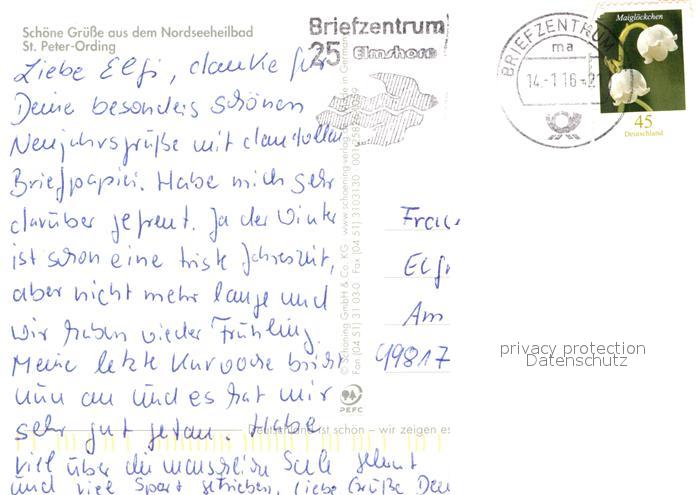 Schöne Grüße aus dem Nordseeheilbad
St. Peter-Ording
Liebe Elfi, danke für
Deine besonders schönen
Neujahrsgrüße mit dem tollen
Briefpapier. Habe mich sehr
darüber gefreut. Ja der Winter
ist schon eine triste Jahreszeit,
aber nicht mehr lange und
wir haben wieder Frühling.
Meine letzte Kurwoche bricht
nun an und es hat mir
sehr gut getan. Habe
viel über die menschliche Seele gelernt
und viel Sport getrieben. Liebe Grüße Dei
Briefzentrum
25 Elmshorn
© Schöning GmbH & Co. KG www.schoening-verlag.de
Fon (04 51) 31 03-0 Fax (04 51) 3103130
PEFC
Deutschland ist schön – wir zeigen es
BRIEFZENTRUM
ma
14.-1.16-21
Maiglöckchen
45
Deutschland
Frau
Elfr
Am
99817
privacy protection
Datenschutz